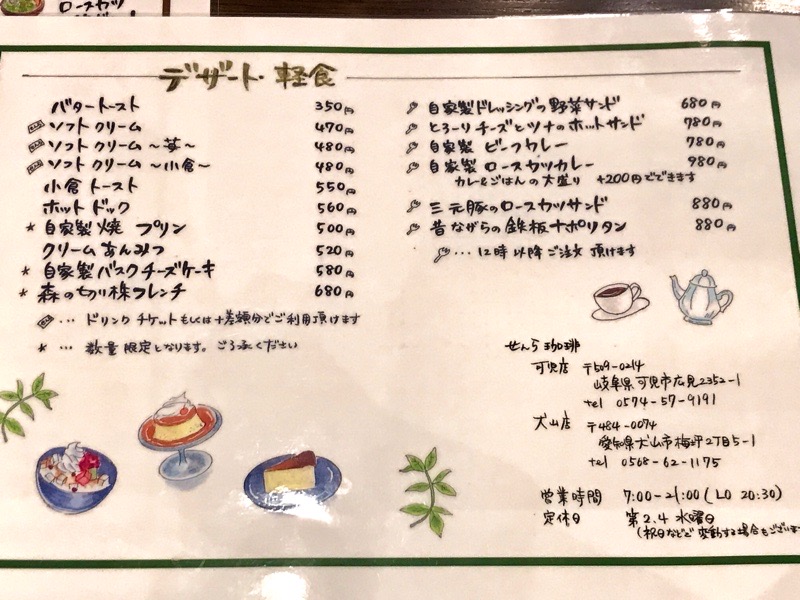 ロースカツ
デザート・軽食
バタートースト 350円
ソフトクリーム 470円
ソフトクリーム ～苺～ 480円
ソフトクリーム ～小倉～ 480円
小倉トースト 550円
ホットドック 560円
* 自家製焼プリン 500円
クリームあんみつ 520円
* 自家製バスクチーズケーキ 580円
* 森の切り株フレンチ 680円
… ドリンクチケットもしくは+差額分でご利用頂けます
* … 数量限定となります。ご了承ください
自家製ドレッシングの野菜サンド 680円
とろーりチーズとツナのホットサンド 780円
自家製 ビーフカレー 780円
自家製 ロースカツカレー 980円
カレー&ごはんの大盛り +200円でできます
三元豚のロースカツサンド 880円
昔ながらの鉄板ナポリタン 880円
… 12時以降ご注文頂けます
せんら珈琲
可児店 〒509-0214
岐阜県可児市広見2352-1
tel 0574-57-9191
犬山店 〒484-0074
愛知県犬山市梅坪2丁目5-1
tel 0568-62-1175
営業時間 7:00-21:00 (LO 20:30)
定休日 第2.4 水曜日
(祝日などで変動する場合もございま